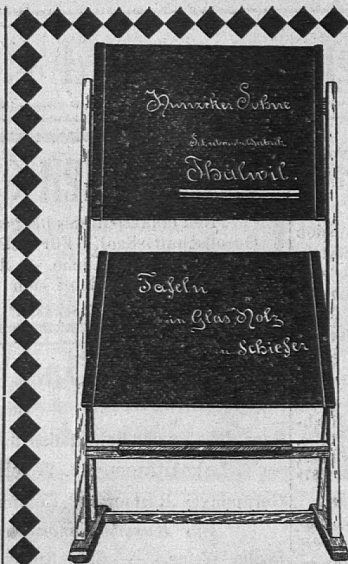 Hunziker Söhne
Schulmöbelfabrik
Thalwil.
Tafeln
in Glas Holz
u. Schiefer